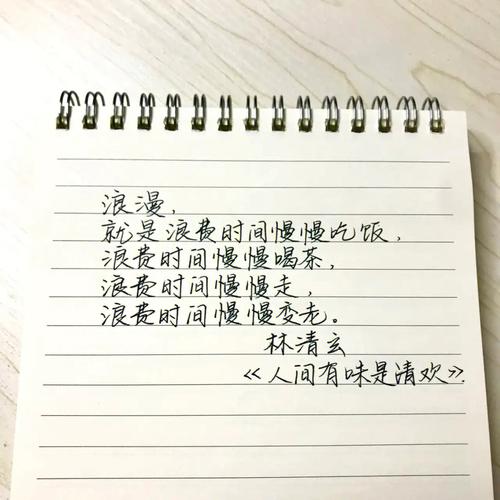 浪漫，
就是浪费时间慢慢吃饭，
浪费时间慢慢喝茶，
浪费时间慢慢走，
浪费时间慢慢变老。
林清玄
《人间有味是清欢》.